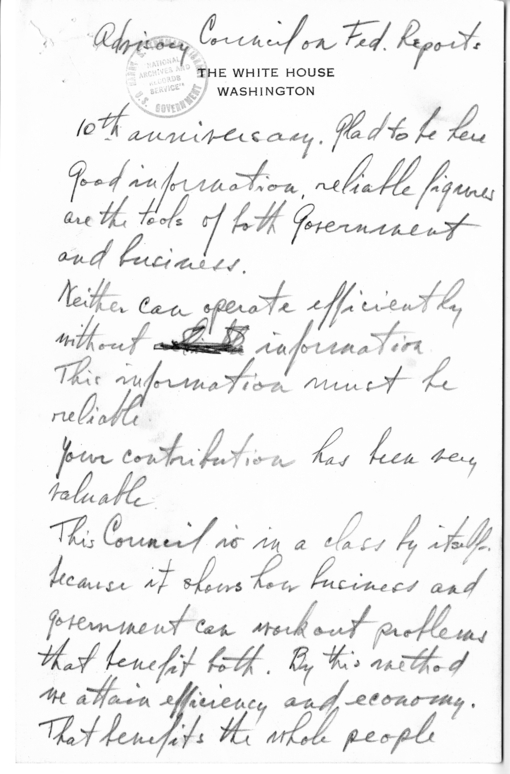 Advisory Council on Fed. Reports
NATIONAL
ARCHIVES AND
RECORDS
SERVICE
U.S. GOVERNMENT
THE WHITE HOUSE
WASHINGTON
10th anniversary. Glad to be here
Good information, reliable figures
are the tools of both Government
and business.
Neither can operate efficiently
without information
This information must be
reliable.
Your contribution has been very
valuable.
This Council is in a class by itself-
because it shows how business and
government can work out problems
that benefit both. By this method
we attain efficiency and economy.
That benefits the whole people